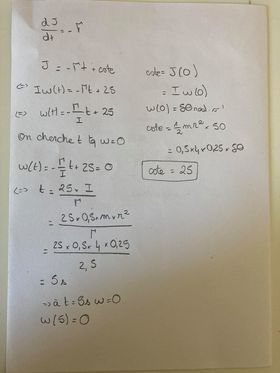 dJ/dt = - Γ
J = - Γt + cste
⇔ I w(t) = - Γt + 25
⇔ w(t) = - Γ/I t + 25
On cherche t tq w=0
w(t) = - Γ/I t + 25 = 0
⇔ t = 25 × I / Γ
= 25 × 0,5 × m × r² / Γ
= 25 × 0,5 × 4 × 0,25 / 2,5
= 5s
⇒ à t = 5s w=0
w(5) = 0
cste = J(0)
= I w(0)
w(0) = 50 rad.s⁻¹
cste = 1/2 m r² × 50
= 0,5 × 4 × 0,25 × 50
cste = 25